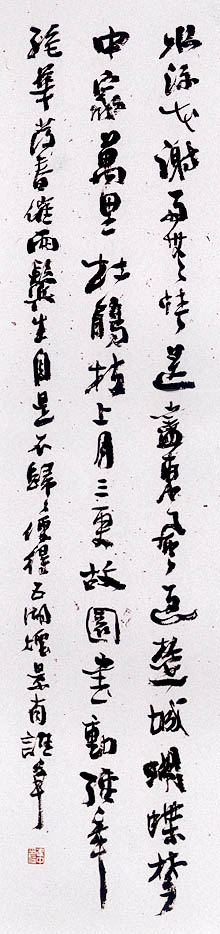 水流花謝兩無情送盡東風過楚城蝴蝶夢
中家萬里杜鵑枝上月三更故園書動經年
絕華髮春催兩鬢生自是不歸々便得五湖煙景有誰爭